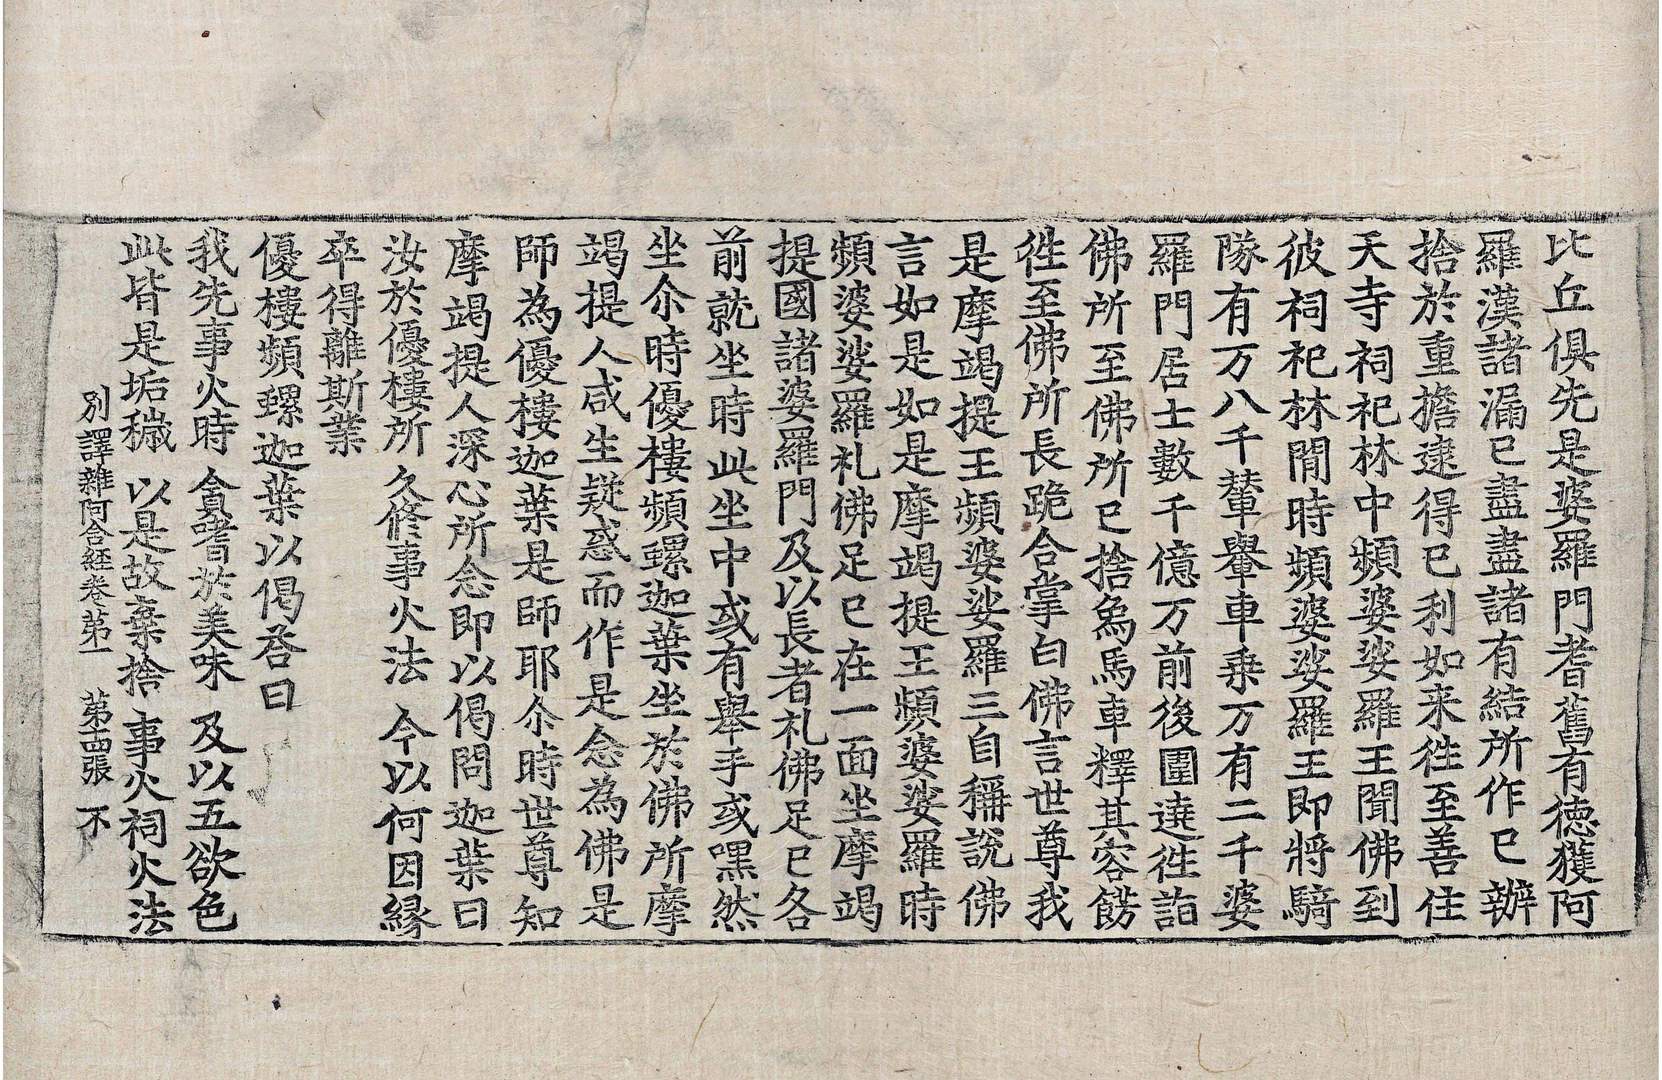 比丘俱先是婆羅門耆舊有德獲阿
羅漢諸漏已盡盡諸有結所作已辦
捨於重擔逮得已利如来徃至善住
天寺祠祀林中頻婆娑羅王聞佛到
彼祠祀林閒時頻婆娑羅王即將騎
隊有万八千輦轝車乗万有二千婆
羅門居士數千億万前後圍遶徃詣
佛所至佛所已捨爲馬車釋其容餝
徃至佛所長跪合掌白佛言世尊我
是摩竭提王頻婆娑羅三自稱說佛
言如是如是摩竭提王頻婆娑羅時
頻婆娑羅礼佛足已在一面坐摩竭
提國諸婆羅門及以長者礼佛足已各
前就坐時此坐中或有舉手或嘿然
坐尒時優樓頻螺迦葉坐於佛所摩
竭提人咸生疑惑而作是念為佛是
師為優樓迦葉是師耶尒時世尊知
摩竭提人深心所念即以偈問迦葉曰
汝於優樓所 久修事火法 今以何因緣
卒得離斯業
優樓頻螺迦葉以偈荅曰
我先事火時 貪嗜於美味 及以五欲色
此皆是垢穢 以是故棄捨 事火祠火法
別譯雜阿含経卷第一 第四張 不